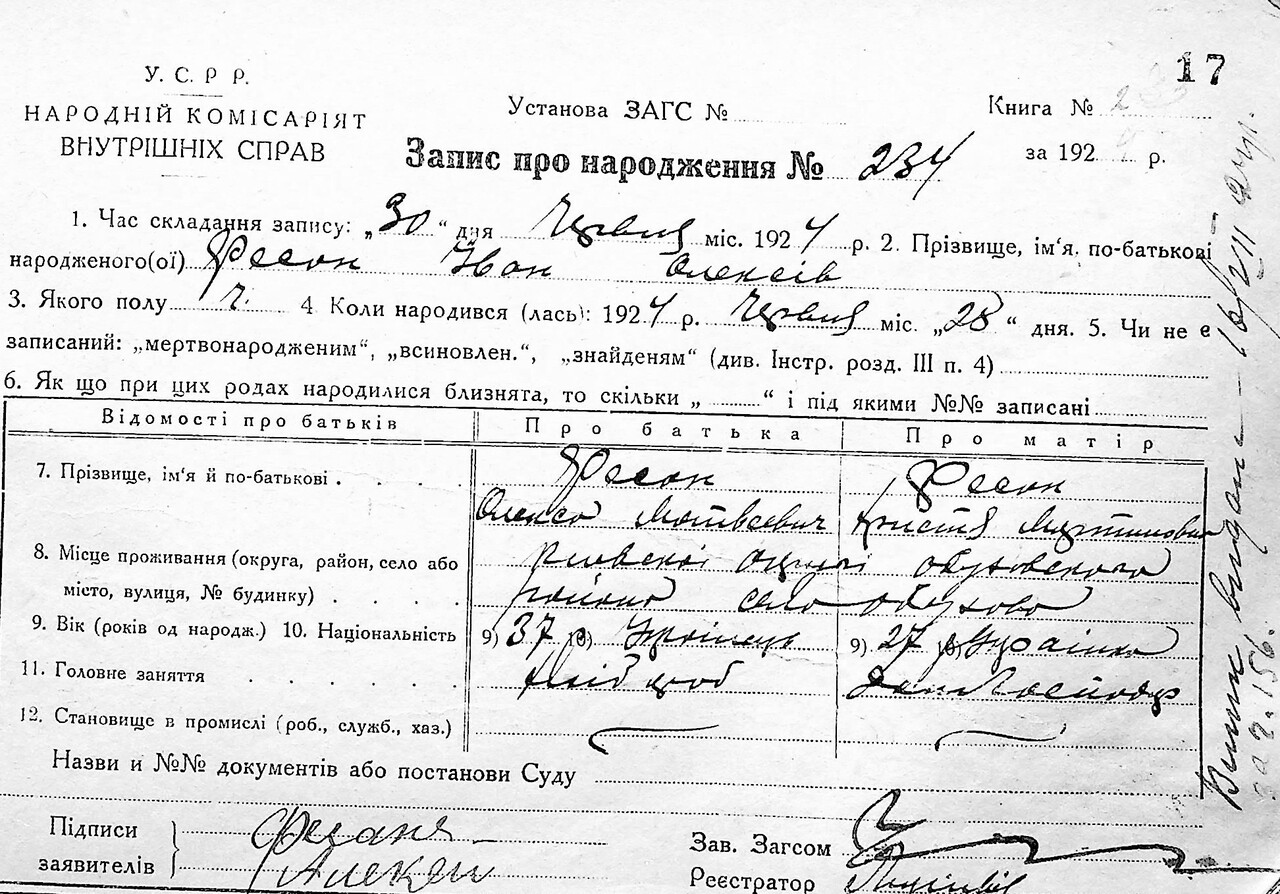 17
У. С. Р Р.
НАРОДНІЙ КОМІСАРІЯТ
ВНУТРІШНІХ СПРАВ
Установа ЗАГС №
Книга №
за 192 р.
Запис про народження № 234
1. Час складання запису: „30“ дня Червня міс. 1924 р. 2. Прізвище, ім'я, по-батькові
народженого(ої) Фесон Іван Олексів
3. Якого полу ч. 4 Коли народився (лась): 1924 р. Червня міс. „28“ дня. 5. Чи не є
записаний: „мертвонародженим“, „всиновлен.“, „знайденям“ (див. Інстр. розд. III п. 4)
6. Як що при цих родах народилися близнята, то скільки „ “ і під якими №№ записані
Відомості про батьків Про батька Про матір
7. Прізвище, ім'я й по-батькові . . . . Фесон Фесон
Олекса Матвеевич Христя
8. Місце проживання (округа, район, село або обуховского
місто, вулиця, № будинку) . . . . району село обухово
9. Вік (років од народж.) 10. Національність 9) 37 р Українець 9) 27 р Українка
11. Головне заняття . . . . . . . хлібороб
12. Становище в промислі (роб., служб., хаз.)
Назви и №№ документів або постанови Суду
Підписи
заявителів
Зав. Загсом
Реєстратор